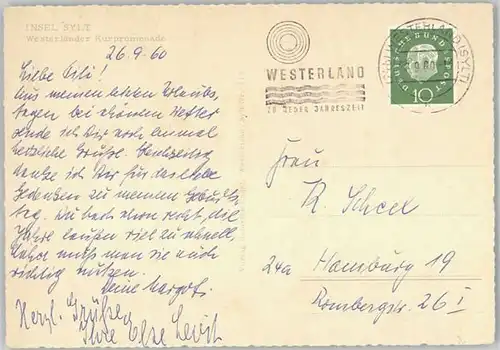 INSEL SYLT
Westerländer Kurpromenade
26.9.60
Liebe Otti!
Aus meinen letzten Urlaubs-
tagen bei schönem Wetter
sende ich Dir noch einmal
herzliche Grüße. Gleichzeitig
danke ich Dir für das liebe
Gedenken zu meinem Geburts-
tag. Du hast schon recht, die
Jahre laufen viel zu schnell,
daher muß man sie auch
richtig nutzen.
Deine Margot.
Herzl. Grüße
Ihre Else
WESTERLAND
ZU JEDER JAHRESZEIT
WESTERLAND (SYLT)
DEUTSCHE BUNDESPOST
10
Frau
R. Scheel
24a Hamburg 19
Rombergstr. 26 I